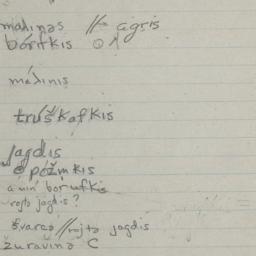 malinas // agris
borifkis
málinis
trúškafkis
jagdis
požmkis
a mín' borufkis
rojta jagdis?
švarco // rojta jagdis
žuravina C